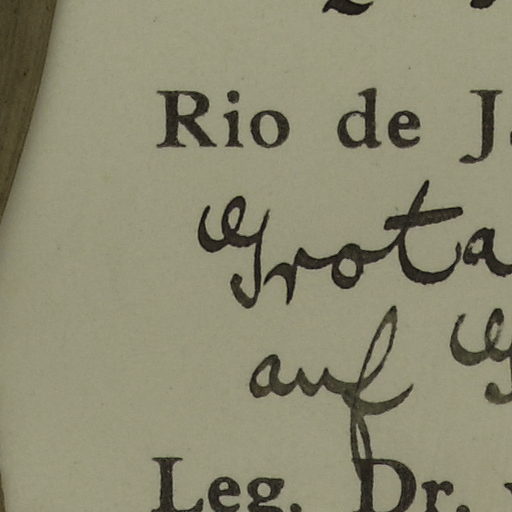 Rio de J
Grota
auf
Leg. Dr.